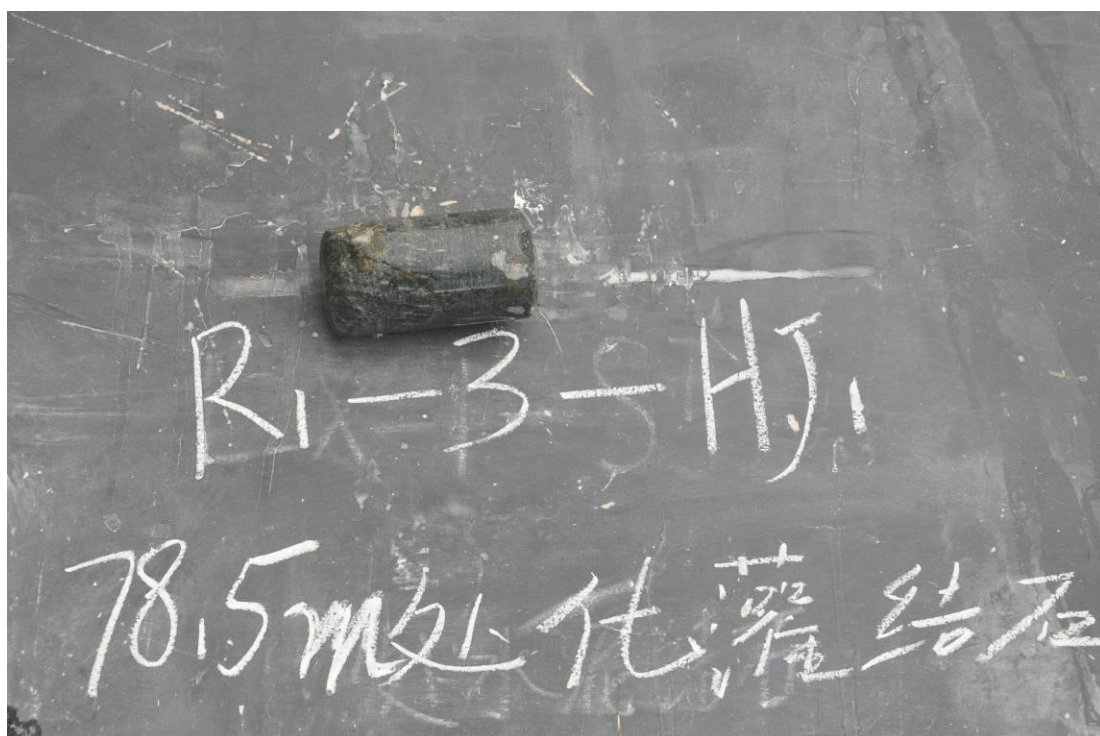 R1-3-HJ1
78.5m处化灌结石